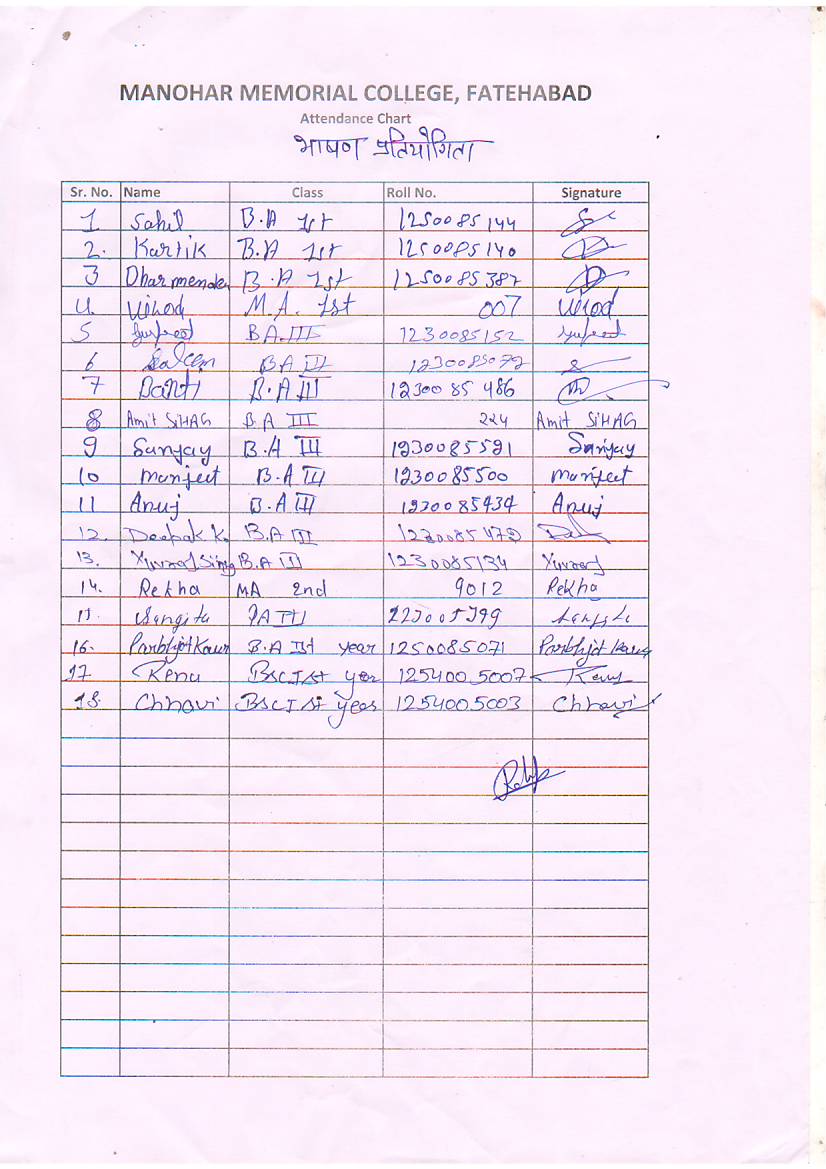 MANOHAR MEMORIAL COLLEGE, FATEHABAD
Attendance Chart
भाषण प्रतियोगिता
Sr. No. Name Class Roll No. Signature
1 Sahil B.A 1st 1250085144
2. Kartik B.A 1st 1250085140
3 Dharmender B.A 1st 1250085387
4. Vinod M.A. 1st 007 Vinod
5 Gurpreet B.A.III 1230085152 Gurpreet
6 Saleem BA III 1230085072
7 Banti B.A III 1230085486
8 Amit SiHAG B.A III 224 Amit SiHAG
9 Sanjay B.A III 1230085521 Sanjay
10 Manjeet B.A III 1230085500 Manjeet
11 Anuj B.A III 1230085434 Anuj
12. Deepak K. B.A III 1230085472
13. Yuvraj Sing B.A III 1230085134 Yuvraj
14. Rekha MA 2nd 9012 Rekha
Sangita
16. Parbhjot Kaur B.A Ist year 1250085071 Parbhjot Kaur
17 Renu BSc Ist year 1254005007 Renu
18. Chhavi BSc Ist year 1254005003 Chhavi